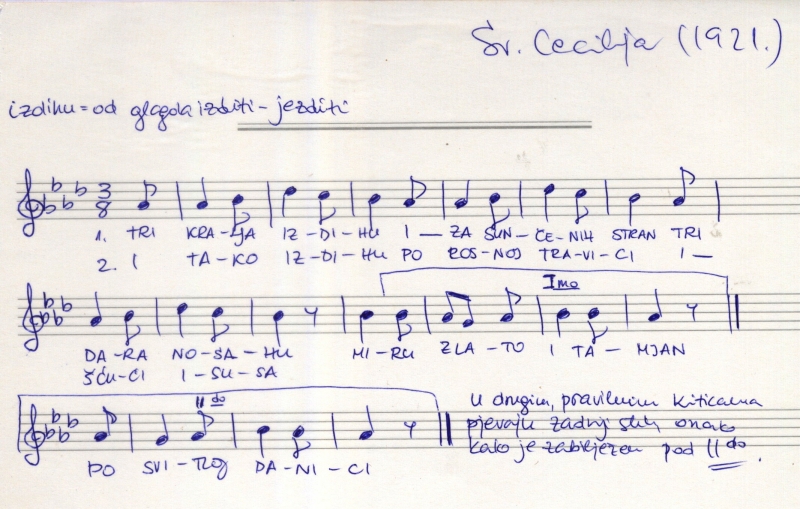 Sv. Cecilija (1921.)
izdihu = od glagola izditi - jezditi
3
8
1. TRI KRA-LJA IZ-DI-HU I — ZA SUN-ČE-NIH STRAN TRI
2. I TA-KO IZ-DI-HU PO ROS-NOJ TRA-VI-CI I —
Imo
DA-RA NO-SA-HU MI-RU ZLA-TO I TA-MJAN
ŠĆU-ĆI I-SU-SA
II do
PO SVI-TLOJ DA-NI-CI
U drugim, pravilnim kiticama
pjevaju zadnji stih onako
kako je zabilježen pod II do.